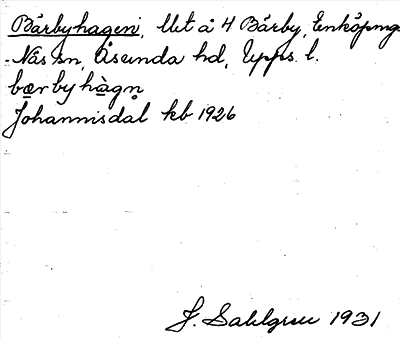 Bärbyhagen, Ut å 4 Bärby, Enköpings
-Näs sn, Åsunda hd, Upps. l.
bœrbyhàgn̥
Johannisdal kb 1926
J. Sahlgren 1931